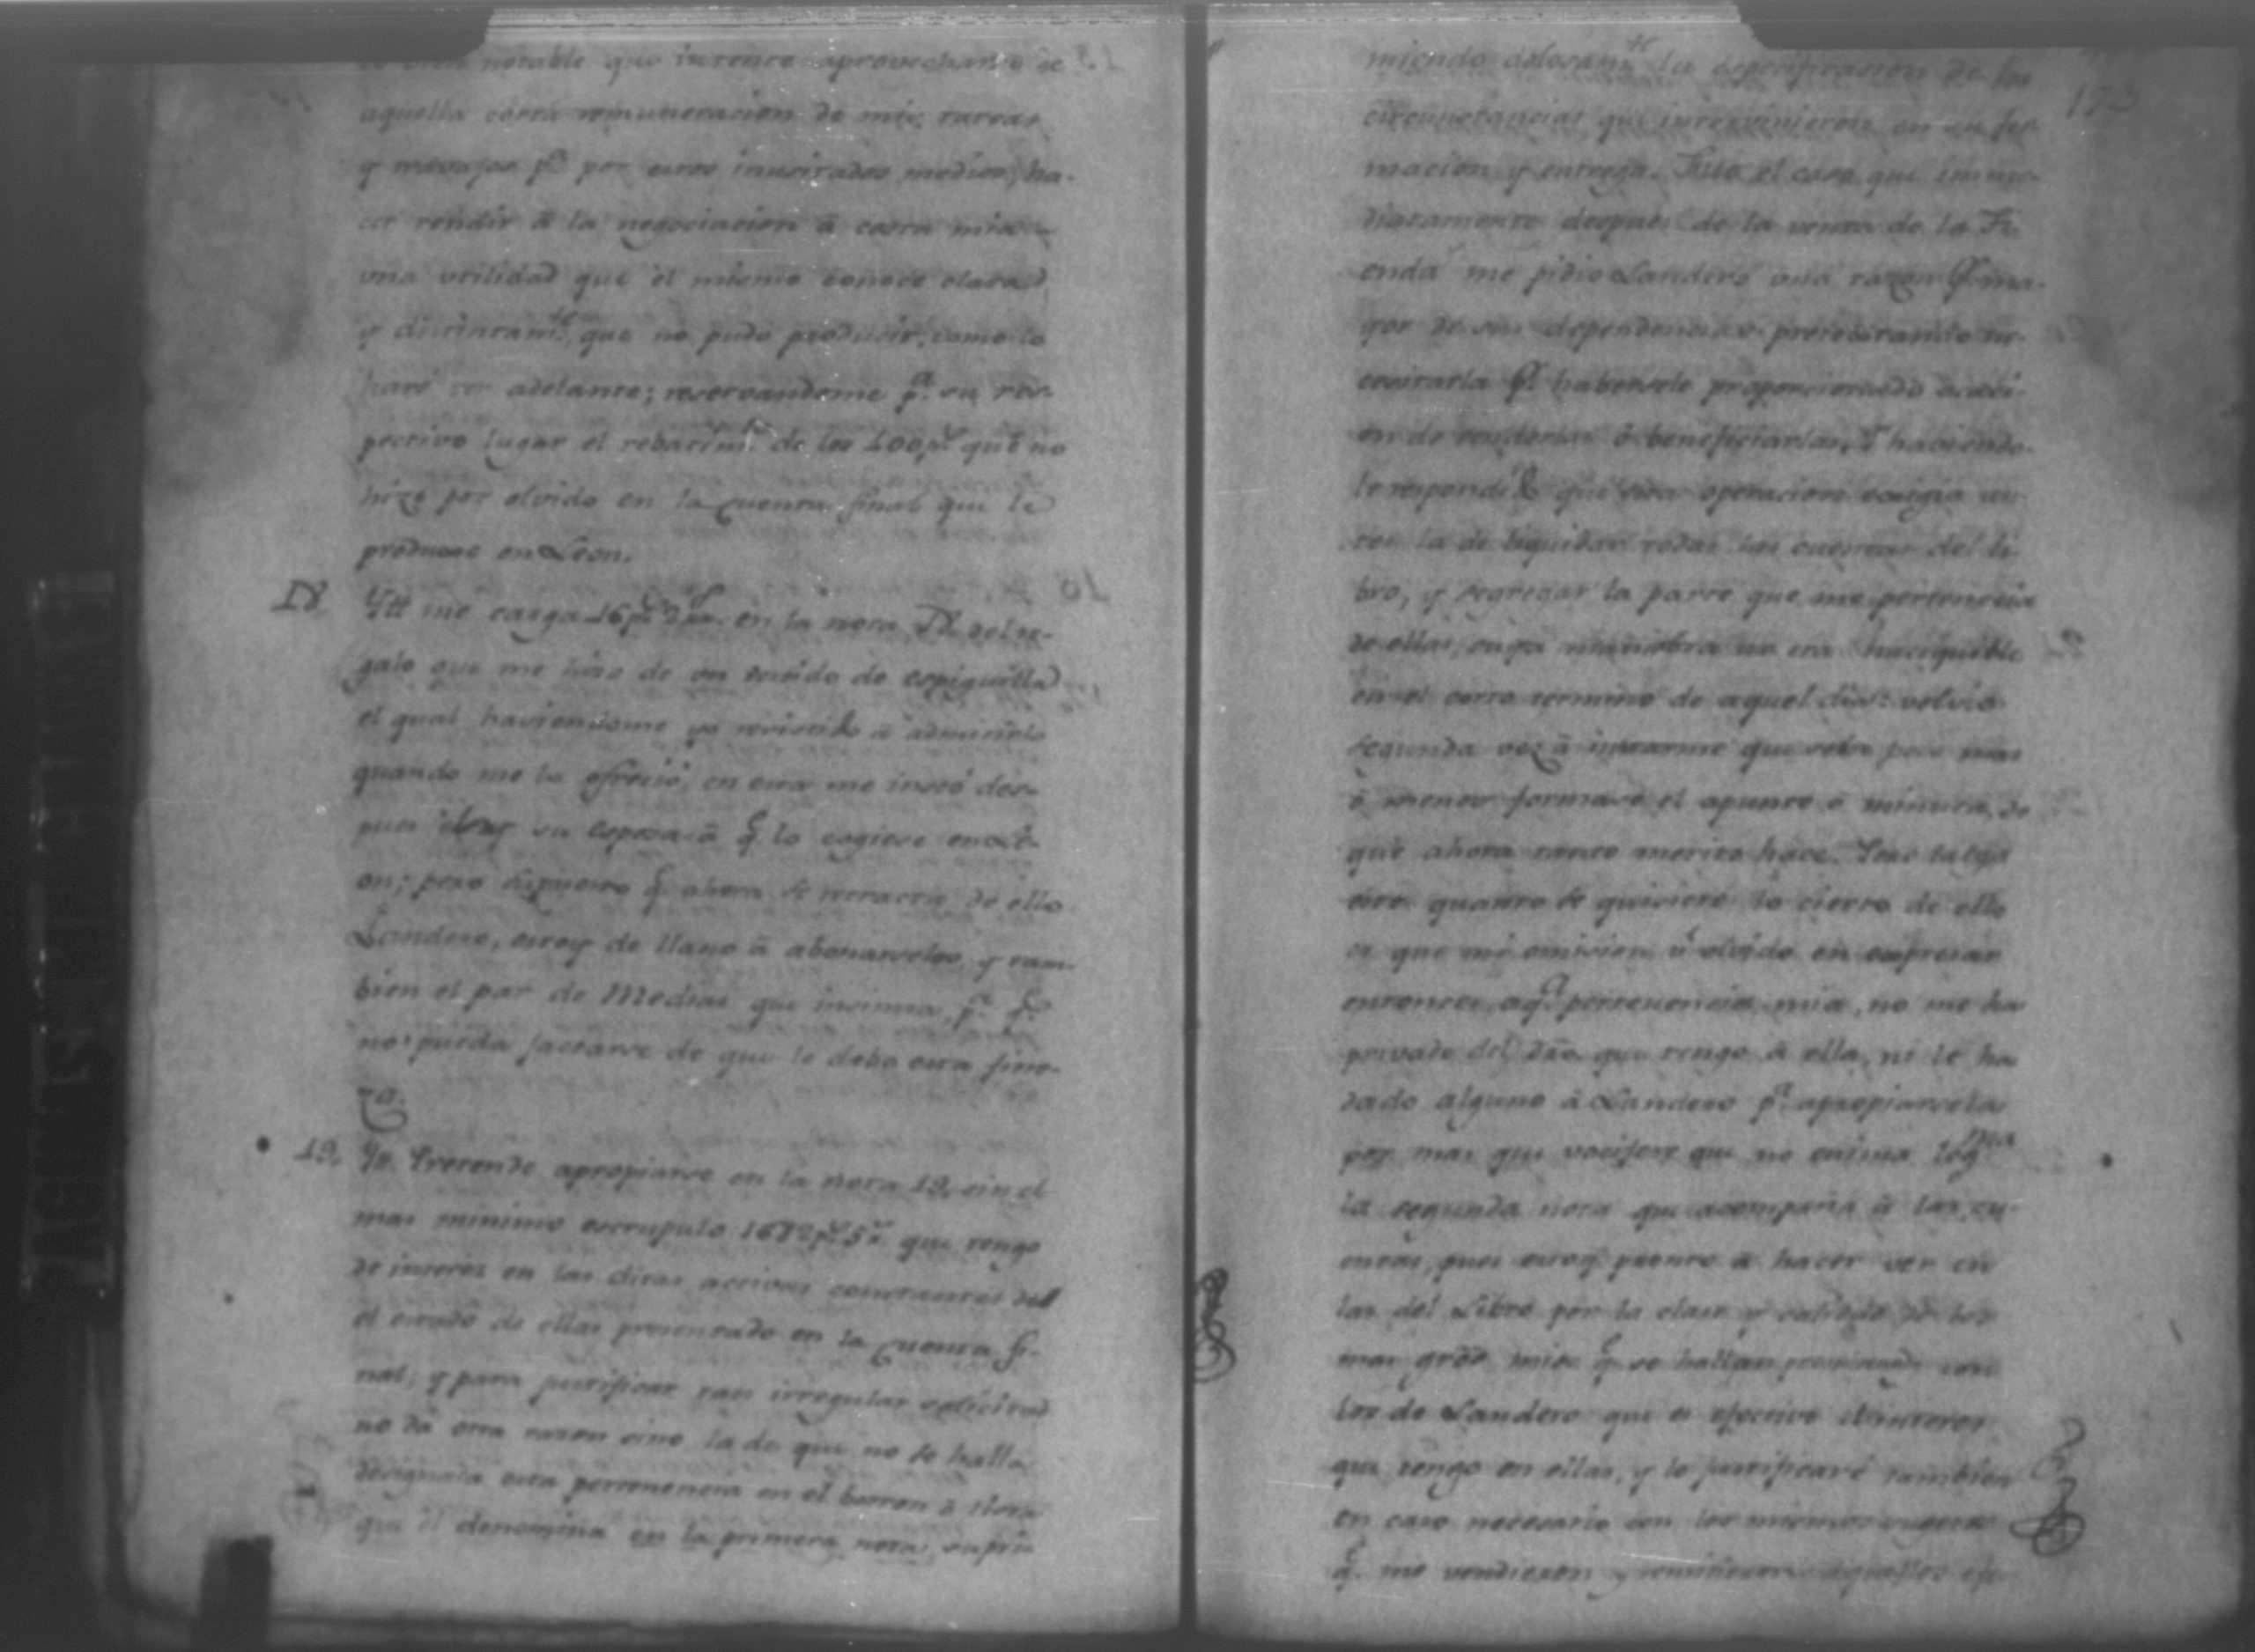 notable que intente aprovecharse de
aquella corta remuneracion de mis tareas
y travajos pa. por estos inusitados medios, ha-
cer rendir â la negociacion â costa mia
una utilidad que el mismo conoce clara
y distintamte. que no pudo producir, como lo
haré ver adelante; reservandome pa. su res-
pectivo lugar el rebacimto. de los 400ps. que no
hize por olvido en la cuenta final que le
produxe en Leon.
IX Ytt me carga 16ps. 2rrs. en la nota IX. del re-
galo que me hizo de un vestido de espiguilla
el qual haviendome yo resistido â admitirlo
quando me lo ofreció, en esta me instó des-
pues su esposa â q. lo cogiese en Le-
on; pero supuesto q. ahora se retracta de ello
Landero, estoy de llano â abonarselos, y tam-
bien el par de Medias que insinua, pa. qe.
no pueda jactarse de que le debo esta fine-
za.
19. Ytt. Pretende apropiarse en la nota 19. sin el
mas minimo escrupulo 1672ps. 5rs. que tengo
de interes en las ditas activas constantes del
el estado de ellas presentado en la cuenta fi-
nal; y para justificar tan irregular solicitud
no dá otra razon sino la de que no se halla
designada esta pertenencia en el borron ô Nota
que él denomina en la primera nota, supri-
173
miendo dolosamte. la especificacion de las
circunstancias que intervinieron en su for-
macion y entrega. Fue el caso que inme-
diatamente despues de la venta de la Ti-
enda me pidio Landero una razon pr. ma-
yor de sus dependencias pretextando ne-
cesitarla pr. haversele proporcionado ocasi-
on de venderlas ô beneficiarlas, Y haviendo-
le respondido que esta operacion exigia an-
tes la de liquidar todas las cuentas del li-
bro, y segregar la parte que me pertenecia
de ellas, cuya maniobra no era hasequible
en el corto termino de aquel dia: volvió
segunda vez â instarme que sobre poco mas
ô menos formase el apunte ô minuta, de
que ahora tanto merito hace. Pero valga
esto quanto se quisiere lo cierto de ello
es que mi omision û olvido en expresar
entonces aqa. pertenencia mia, no me ha
privado del dro. que tengo â ella, ni le ha
dado alguno â Landero pa. apropiarsela
por mas que vocifere que no exima
la segunda nota que acompaña â las cu-
entas, pues estoy pronto â hacer ver en
las del Libro por la clase y calidad de los
mas gros. mios q. se hallan con
los de Landero que es efectivo el interes
que tengo en ellas, y lo justificaré tambien
en caso necesario con los mismos sugetos
q. me vendieron y remitieron aquellos efe-